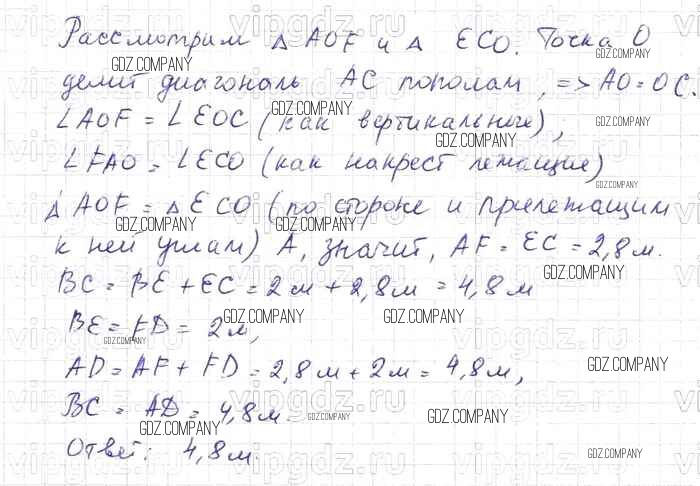 Рассмотрим △ AOF и △ ECO. Точка O
GDZ.COMPANY GDZ.COMPANY
делит диагональ AC пополам, => AO = OC.
GDZ.COMPANY GDZ.COMPANY
∠AOF = ∠EOC (как вертикальные),
GDZ.COMPANY
∠FAO = ∠ECO (как накрест лежащие)
GDZ.COMPANY
△ AOF = △ ECO (по стороне и прилежащим
GDZ.COMPANY GDZ.COMPANY
к ней углам) А, значит, AF = EC = 2,8 м.
GDZ.COMPANY
BC = BE + EC = 2 м + 2,8 м = 4,8 м
GDZ.COMPANY GDZ.COMPANY
BE = FD = 2 м,
GDZ.COMPANY
AD = AF + FD = 2,8 м + 2 м = 4,8 м,
GDZ.COMPANY
BC = AD = 4,8 м.
GDZ.COMPANY GDZ.COMPANY GDZ.COMPANY
Ответ: 4,8 м.
GDZ.COMPANY
vipgdz.ru